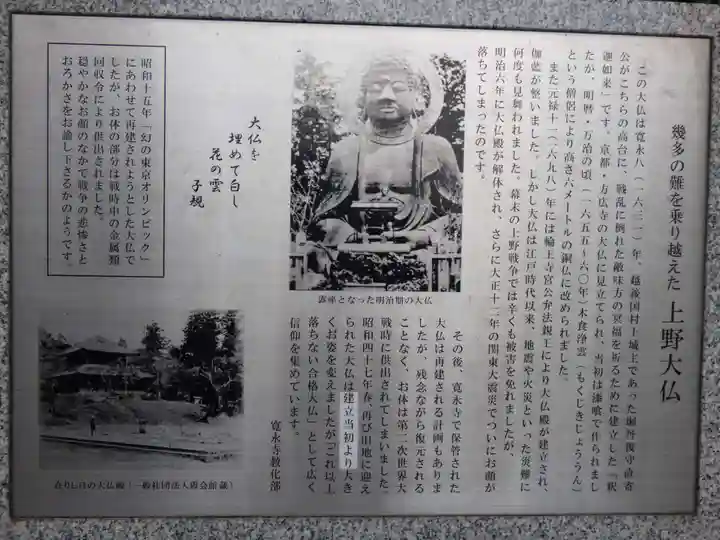 幾多の難を乗り越えた 上野大仏
この大仏は寛永八(一六三一)年、越後国村上城主であった堀丹後守直寄
公がこちらの高台に、戦乱に倒れた敵味方の冥福を祈るために建立した「釈
迦如来」です。京都・方広寺の大仏に見立てられ、当初は漆喰で作られまし
たが、明暦・万治の頃(一六五五~六〇年)木食浄雲(もくじきじょううん)
という僧侶により高さ六メートルの銅仏に改められました。
また元禄十一(一六九八)年には輪王寺宮公弁法親王により大仏殿が建立され、
伽藍が整いました。しかし大仏は江戸時代以来、地震や火災といった災難に
何度も見舞われました。幕末の上野戦争では辛くも被害を免れましたが、
明治六年に大仏殿が解体され、さらに大正十二年の関東大震災でついにお顔が
落ちてしまったのです。
露座となった明治期の大仏
その後、寛永寺で保管された
大仏は再建される計画もありま
したが、残念ながら復元される
ことなく、お体は第二次世界大
戦時に供出されてしまいました。
昭和四十七年春、再び旧地に迎え
られた大仏は建立当初より大き
くお姿を変えましたが「これ以上
落ちない合格大仏」として広く
信仰を集めています。
寛永寺教化部
大仏を
埋めて白し
花の雲
子規
昭和十五年「幻の東京オリンピック」
にあわせて再建されようとした大仏で
したが、お体の部分は戦時中の金属類
回収令により供出されました。
穏やかなお顔のなかで戦争の悲惨さと
おろかさをお諭し下さるかのようです。
在りし日の大仏殿(一般社団法人霞会館蔵)